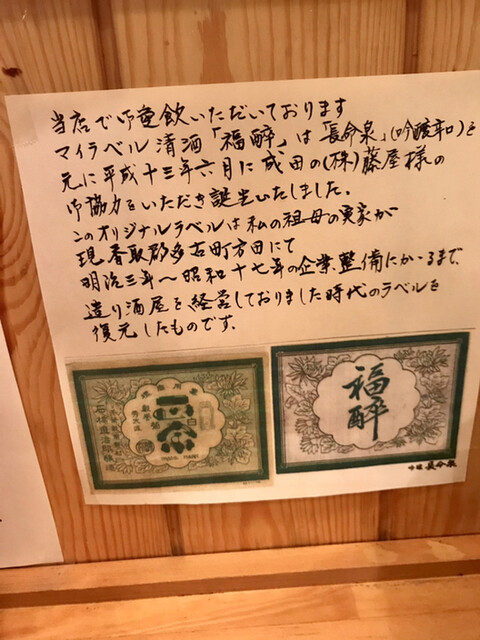 当店で御愛飲いただいております
マイラベル清酒「福酔」は「長命泉」(吟醸辛口)を
元に平成十三年六月に成田の(株)藤屋様の
御協力をいただき誕生いたしました。
このオリジナルラベルは私の祖母の実家が
現香取郡多古町方田にて
明治三年〜昭和十七年の企業整備にかゝるまで、
造り酒屋を経営しておりました時代のラベルを
復元したものです。
福酔
吟醸 長命泉